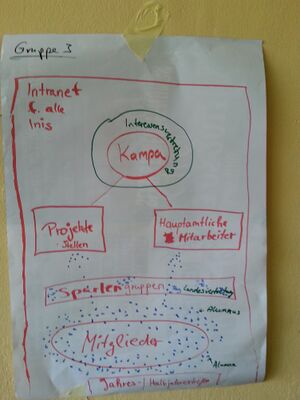 Gruppe 3
Intranet
f. alle
Inis
Interessensvertretung
Kampa
Projekte
Stellen
Hauptamtliche
Mitarbeiter
Spartengruppen
Landesvertretung
Alumnus
Mitglieder
Alumna
Jahres-/Halbjahrestreffen